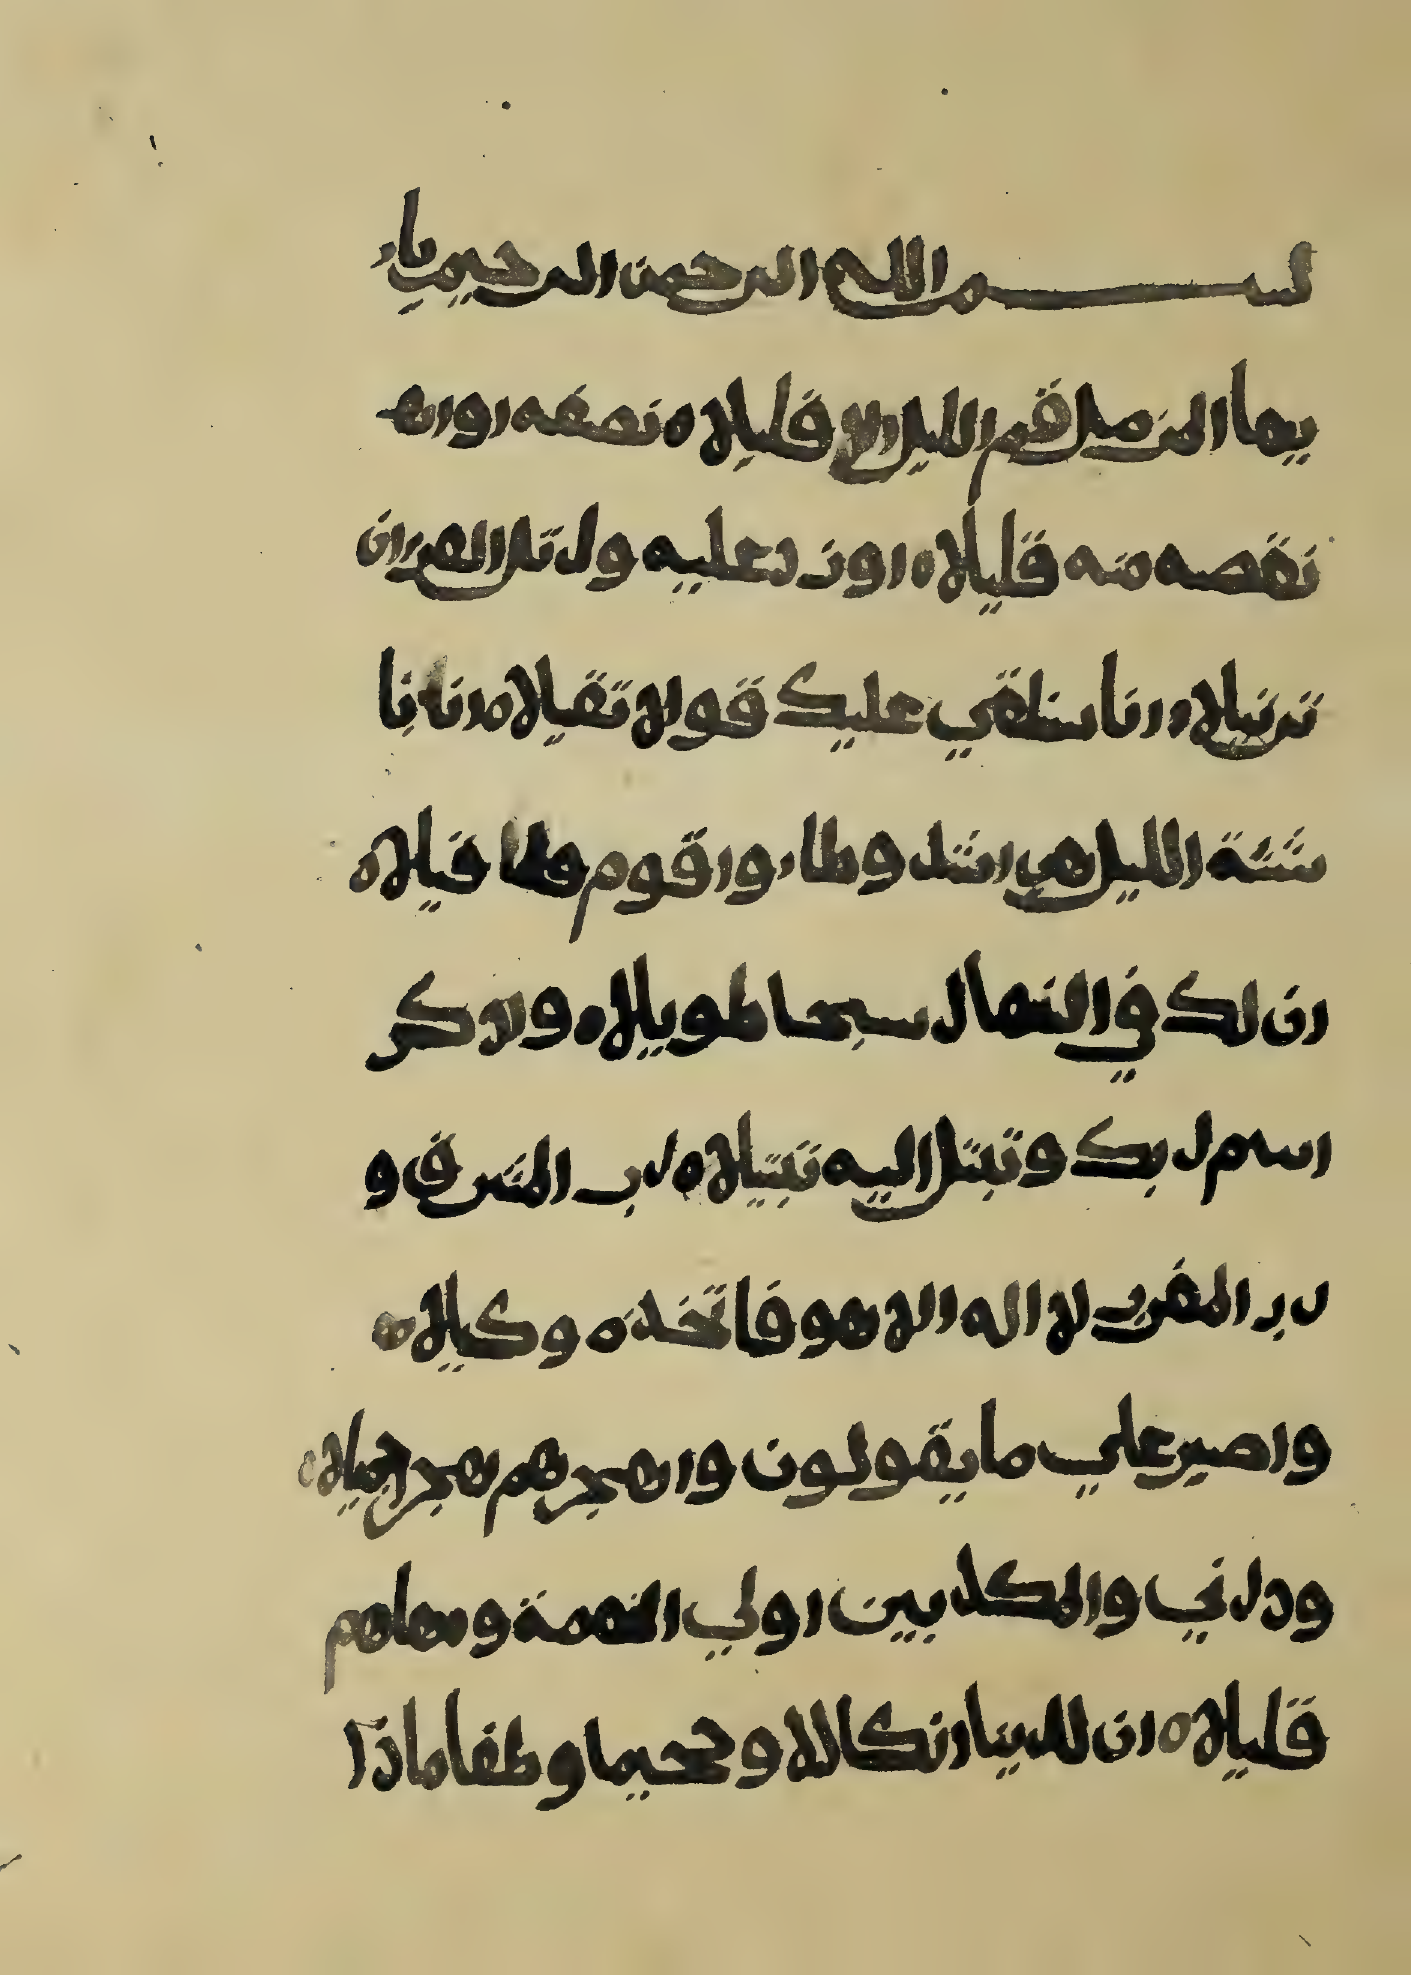 بسم الله الرحمن الرحيم يا
يها المزمل قم الليل الا قليلاه نصفه او انه
نقصه منه قليلاه اوزد عليه ورتل القران
ترتيلاه انا سنلقي عليك قولا ثقيلاه انا نا
شئة الليل هي اشد وطاء واقوم قيلاه
ان لك في النهار سبحا طويلاه واذكر
اسم ربك وتبتل اليه تبتيلاه رب المشرق و
رب المغرب لا اله الا هو فاتخذه وكيلاه
واصبر علي ما يقولون واهجرهم هجرا جميلاه
وذرني والمكذبين اولي النعمة ومهلهم
قليلاه ان لدينا انكالا وجحيما وطعاما ذا